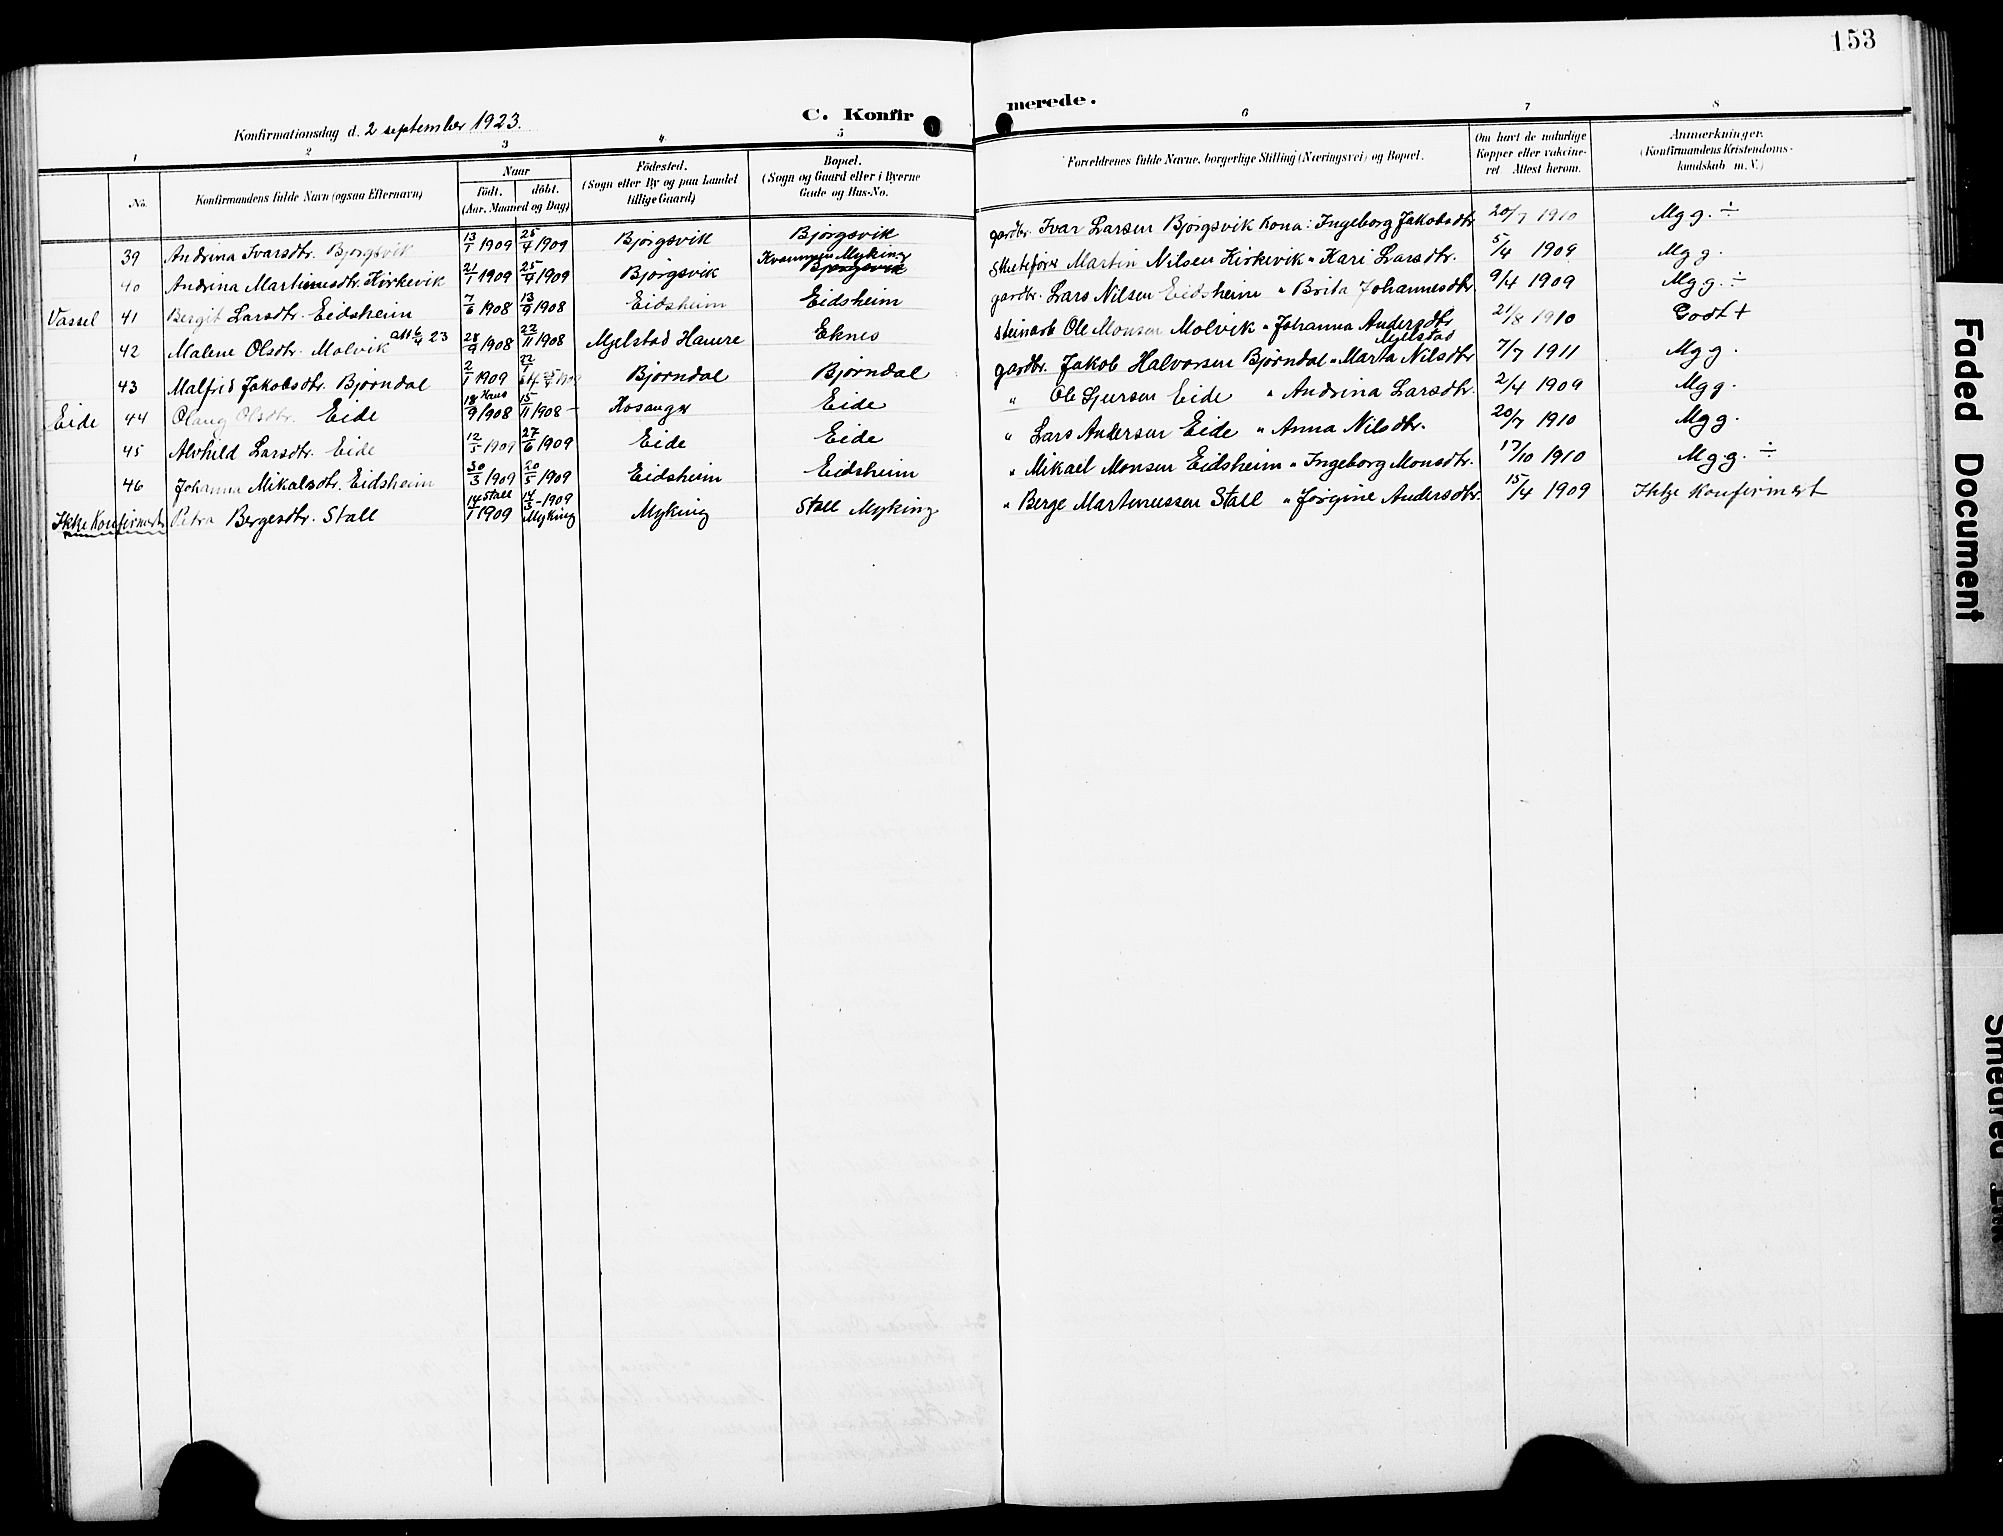 153
C. Konfir
merede.
Konfirmationsdag d. 2 september 1923.
1 2 3 4 5 6 7 8
No. Konfirmandens fulde Navn (ogsaa Efternavn) Naar födt. döbt. (Aar, Maaned og Dag) Födested. (Sogn eller By og paa Landet tillige Gaard) Bopæl. (Sogn og Gaard eller i Byerne Gade og Hus-No. Forældrenes fulde Navne, borgerlige Stilling (Næringsvei) og Bopæl. Om havt de naturlige Kopper eller vaccineret Attest herom. Anmærkninger. (Konfirmandens Kristendomskundskab m. V.)
39 Andrina Ivarsdtr. Bjorgsvik 13/1 1909 25/4 1909 Bjørgsvik Bjørgsvik gardbr. Ivar Larsen Bjørgsvik Kona: Ingeborg Jakobsdtr 20/7 1910 Mg g. ÷
40 Andrina Martinusdtr. Kirkevik 21/1 1909 25/4 1909 Bjørgsvik Myking Bjørgsvik Martin Nilsen Kirkevik " Kari Larsdtr. 5/4 1909 Mg g.
Vassel 41 Bergit Larsdtr. Eidsheim 7/6 1908 13/9 1908 Eidsheim Eidsheim gardbr. Lars Nilsen Eidsheim " Brita Johannesdtr 9/4 1909 Mg g. ÷
42 Malene Olsdtr. Molvik att 6/4 23 28/9 1908 22/11 1908 Mjelstad Hamre Eknes steinarb Ole Monsen Molvik " Johanna Andersdtr Mjelstad 21/8 1910 Godt +
43 Malfrid Jakobsdtr. Bjørndal 2/1 1909 Bjørndal Bjørndal gardbr. Jakob Halvorsen Bjørndal " Marta Nilsdtr 7/7 1911 Mg g.
Eide 44 Olaug Olsdtr. Eide 18/9 1908 Haus 15/11 1908 Hosanger Eide " Ole Sjursen Eide " Andrina Larsdtr. 2/4 1909 Mg g.
45 Alvhild Larsdtr. Eide 12/5 1909 27/6 1909 Eide Eide " Lars Andersen Eide " Anna Nilsdtr. 20/7 1910 Mg g.
46 Johanna Mikalsdtr. Eidsheim 30/3 1909 20/5 1909 Eidsheim Eidsheim " Mikael Monsen Eidsheim " Ingeborg Monsdtr. 17/10 1910 Mg g. ÷
Ikkje Konfirmert Petra Bergesdtr. Stall 14/1 1909 Stall 14/3 1909 Myking Myking Stall Myking " Berge Martinussen Stall " Jørgine Andersdtr. 15/4 1909 Ikkje Konfirmert
Faded Document
Smeared Ink